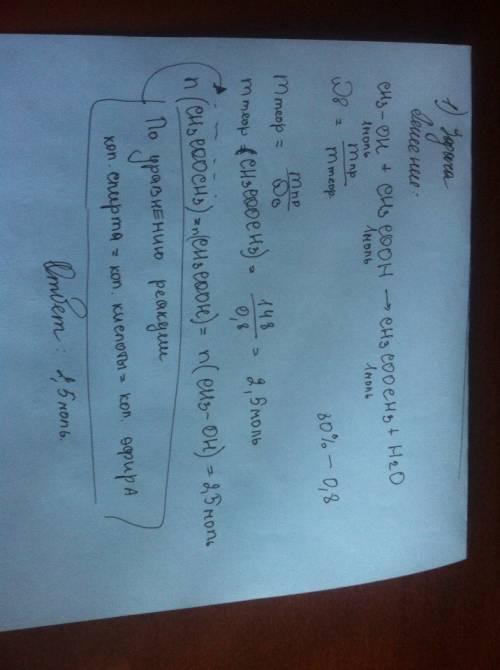 1) Задача
Решение:
CH3-OH + CH3COOH → CH3COOCH3 + H2O
1моль 1моль 1моль
ωв = mпр / mтеор. 80% - 0,8
mтеор = mпр / ωв
mтеор (CH3COOCH3) = 148 / 0,8 = 2,5 моль
n (CH3COOCH3) = n(CH3COOH) = n (CH3-OH) = 2,5 моль
По уравнению реакции
кол. спирта = кол. кислоты = кол. эфира
Ответ: 2,5 моль.